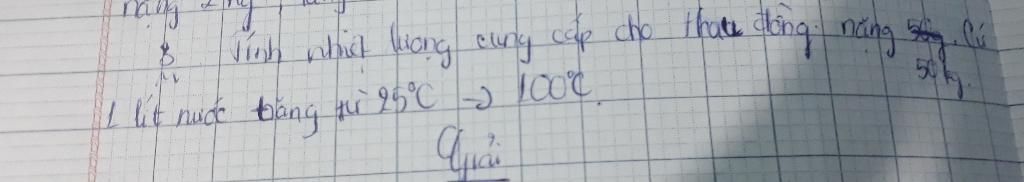 Tính nhiệt lượng cung cấp cho thau đồng nặng
50 kg.
1 lít nước tăng từ 25°C → 100°C.
Giải